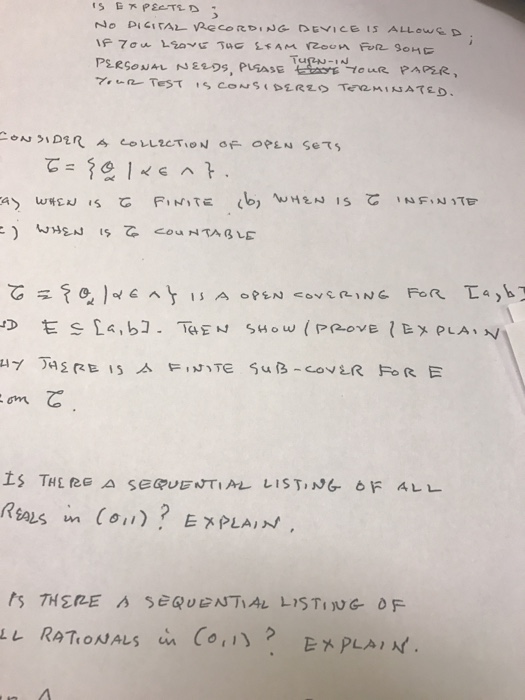 IS EXPECTED ;
NO DIGITAL RECORDING DEVICE IS ALLOWED ;
IF YOU LEAVE THE EXAM ROOM FOR SOME
PERSONAL NEEDS, PLEASE TURN-IN YOUR PAPER,
YOUR TEST IS CONSIDERED TERMINATED.
CONSIDER A COLLECTION OF OPEN SETS
τ = { O_α | α ∈ Λ }.
(a) WHEN IS τ FINITE (b) WHEN IS τ INFINITE
c) WHEN IS τ COUNTABLE
τ = { O_α | α ∈ Λ } IS A OPEN COVERING FOR [a,b]
ND E ⊆ [a,b]. THEN SHOW / PROVE / EXPLAIN
HY THERE IS A FINITE SUB-COVER FOR E
rom τ.
IS THERE A SEQUENTIAL LISTING OF ALL
REALS in (0,1) ? EXPLAIN.
IS THERE A SEQUENTIAL LISTING OF
LL RATIONALS in (0,1) ? EXPLAIN.